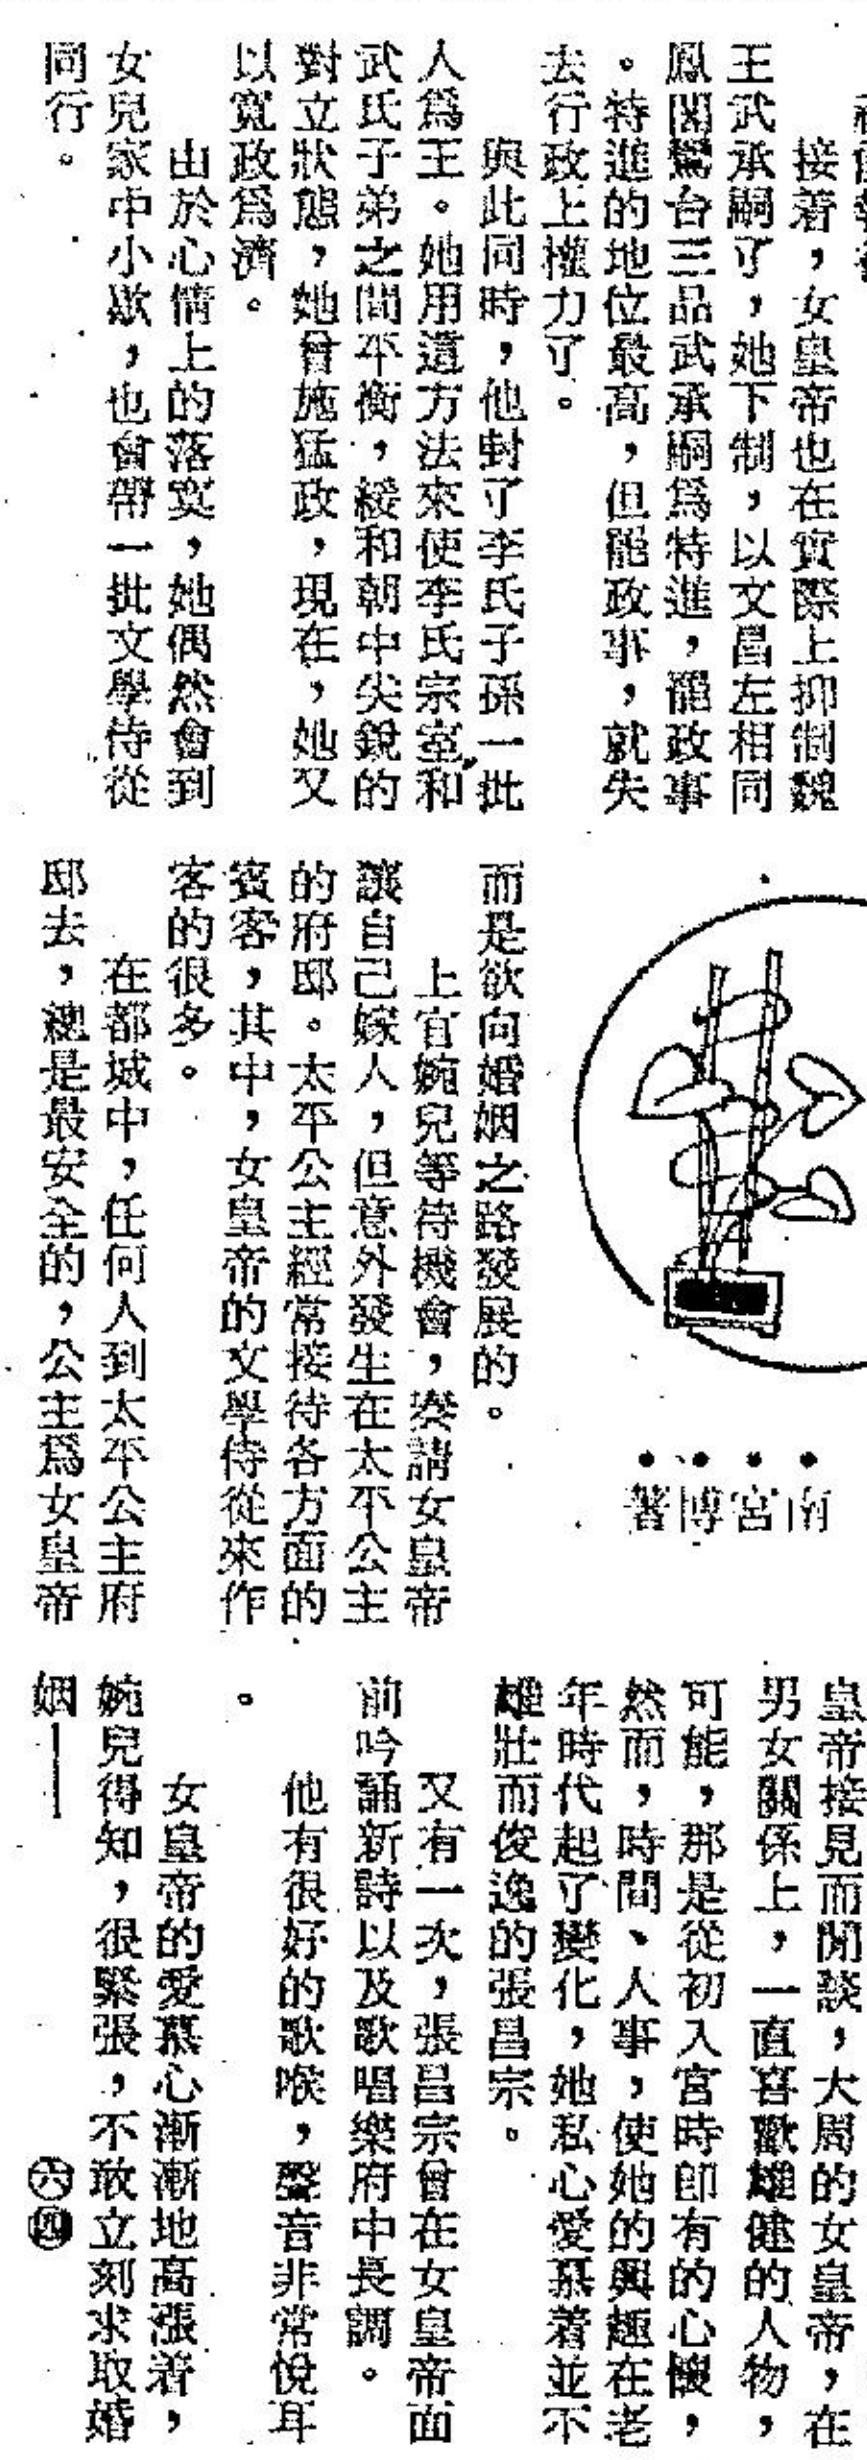 接着，女皇帝也在實際上抑制魏
王武承嗣了，她下制，以文昌左相同
鳳閣鸞台三品武承嗣爲特進，罷政事
。特進的地位最高，但罷政事，就失
去行政上權力了。
與此同時，他封了李氏子孫一批
人爲王。她用這方法來使李氏宗室和
武氏子弟之間平衡，緩和朝中尖銳的
對立狀態，她曾施猛政，現在，她又
以寬政爲濟。
由於心情上的落寞，她偶然會到
女兒家中小歇，也會帶一批文學侍從
同行。
南宮博著
而是欲向婚姻之路發展的。
上官婉兒等待機會，奏請女皇帝
讓自己嫁人，但意外發生在太平公主
的府邸。太平公主經常接待各方面的
賓客，其中，女皇帝的文學侍從來作
客的很多。
在都城中，任何人到太平公主府
邸去，總是最安全的，公主爲女皇帝
皇帝接見而閒談，大周的女皇帝，在
男女關係上，一直喜歡雄健的人物，
可能，那是從初入宮時卽有的心懷，
然而，時間、人事，使她的興趣在老
年時代起了變化，她私心愛慕着並不
雄壯而俊逸的張昌宗。
又有一次，張昌宗曾在女皇帝面
前吟誦新詩以及歌唱樂府中長調。
他有很好的歌喉，聲音非常悅耳
。
女皇帝的愛慕心漸漸地高漲着，
婉兒得知，很緊張，不敢立刻求取婚
姻——
六四